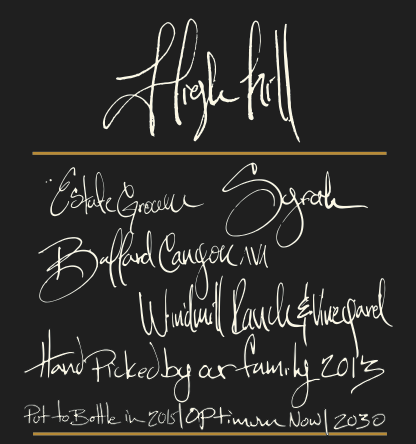 High hill
Estate Grown Syrah
Ballard Canyon
Windmill Ranch & Vineyard
Hand Picked by our family 2013
Put to Bottle in 2015 | Optimum Now | 2030